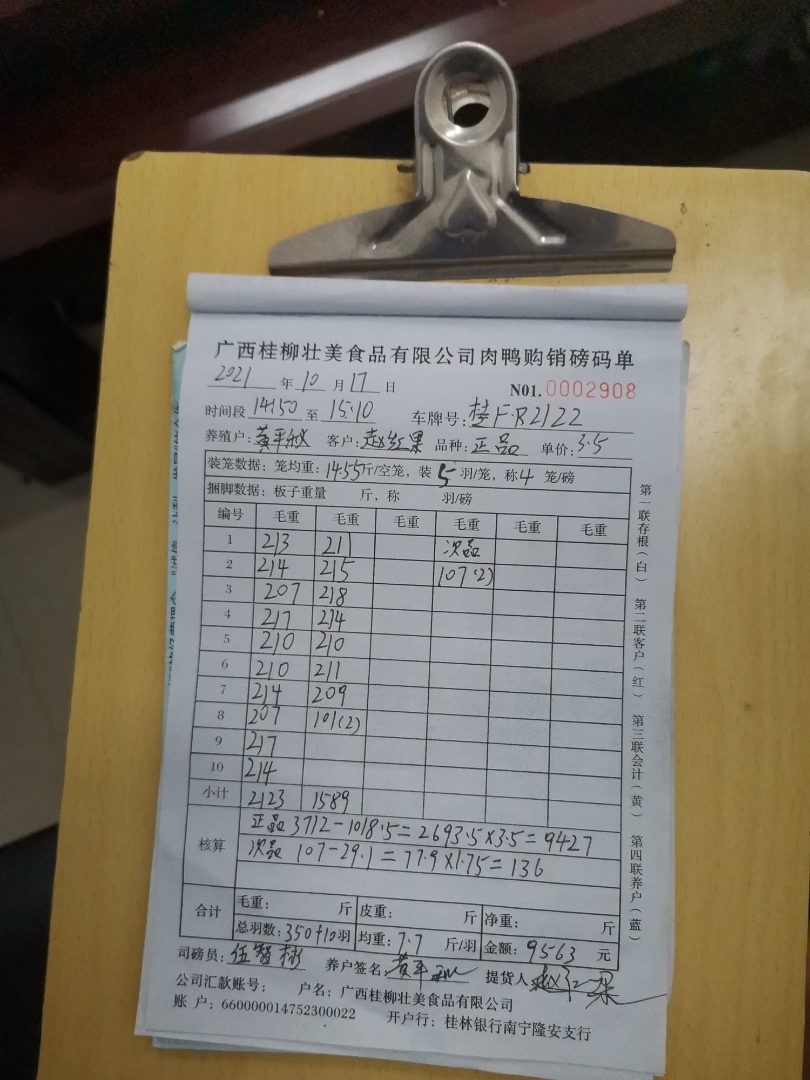 广西桂柳壮美食品有限公司肉鸭购销磅码单
2021 年 10 月 17 日 N01.0002908
时间段 14:50 至 15:10 车牌号: 桂F·R2122
养殖户: 黄平秋 客户: 赵红果 品种: 正品 单价: 3.5
装笼数据: 笼均重: 14.55斤/空笼, 装 5 羽/笼, 称4 笼/磅
捆脚数据: 板子重量 斤, 称 羽/磅
编号 毛重 毛重 毛重 毛重 毛重 毛重
1 213 211 次品
2 214 215 107(2)
3 207 218
4 217 214
5 210 210
6 210 211
7 214 209
8 207 101(2)
9 217
10 214
小计 2123 1589
核算 正品 3712-1018.5=2693.5×3.5=9427
次品 107-29.1=77.9×1.75=136
合计 毛重: 斤 皮重: 斤 净重: 斤
总羽数: 350+10羽 均重: 7.7 斤/羽 金额: 9563 元
司磅员: 伍智彬 养户签名: 黄平秋 提货人 赵红果
公司汇款账号: 户名: 广西桂柳壮美食品有限公司
账 户: 660000014752300022 开户行: 桂林银行南宁隆安支行
第一联存根(白) 第二联客户(红) 第三联会计(黄) 第四联养户(蓝)